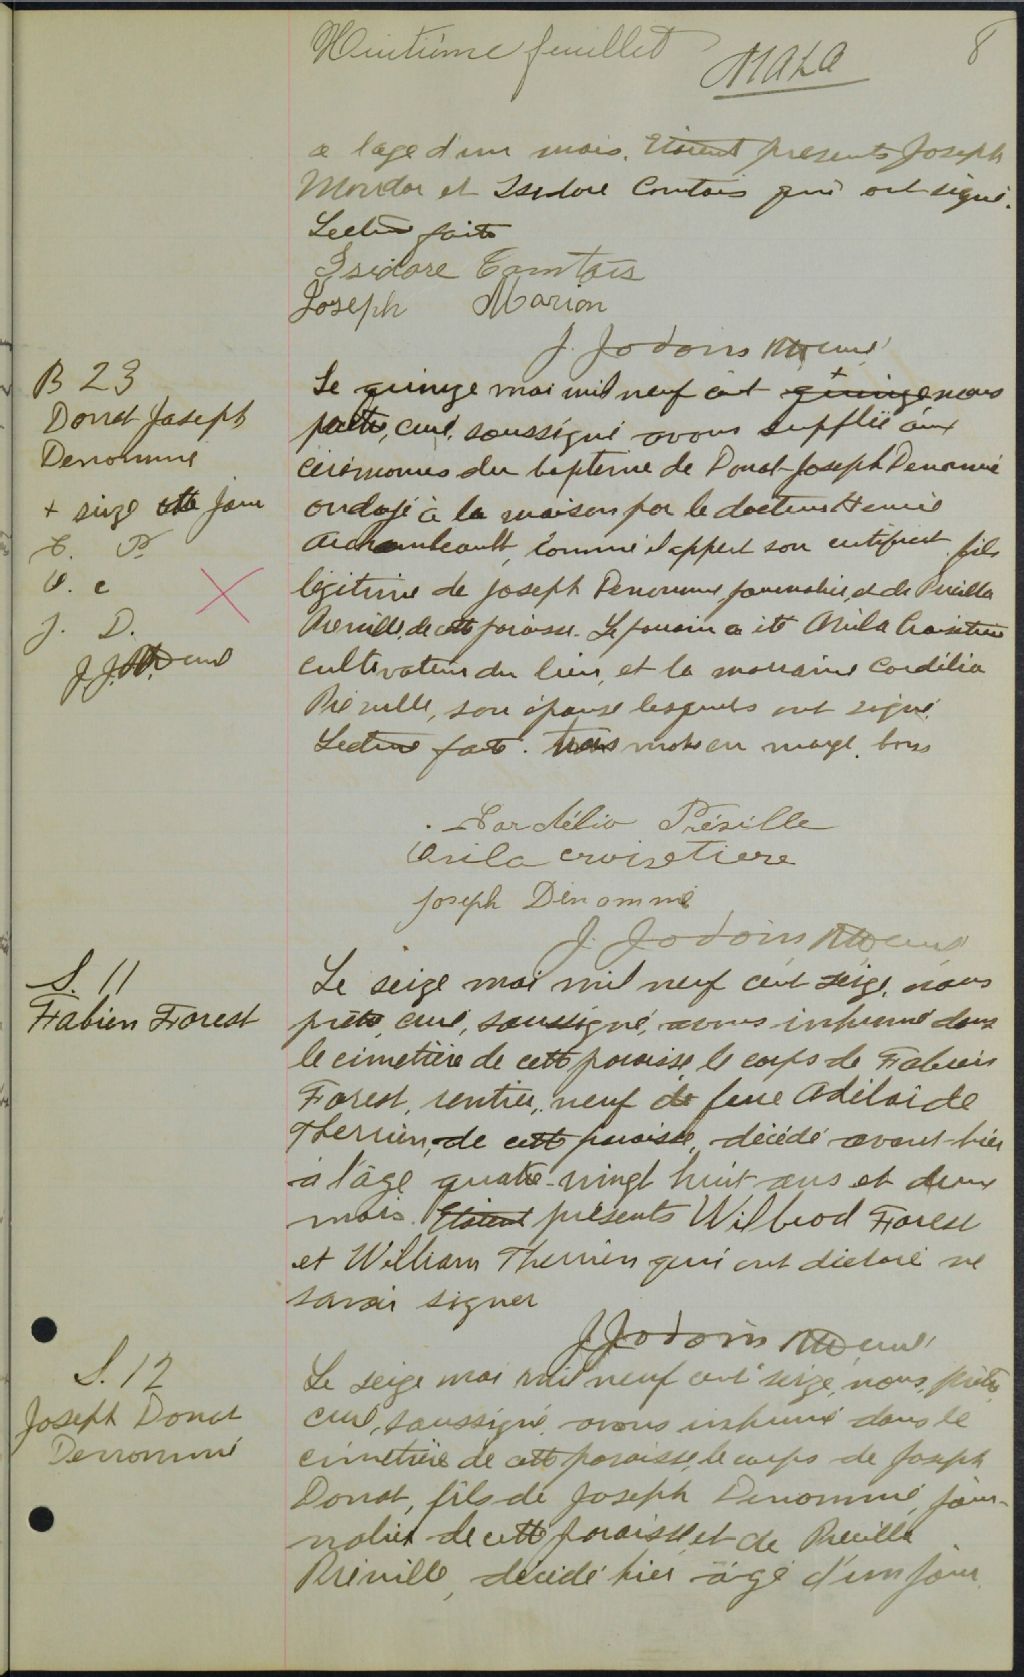 Huitième feuillet
8
a l'age d'un mois. Etaient presents Joseph
et Isidore Contois qui ont signé.
Lecture faite
Isidore Comtois
Joseph Marion
J. Jodoin ptre curé
B 23
Donat Joseph
Denommé
+ seize cette jour
C. P.
O. c
J. D.
J. J. ptre curé
Le quinze mai mil neuf cent quinze nous
prêtre, curé, soussigné avons supplié aux
cérémonies du bapteme de Donat Joseph Denommé
ondoyé à la maison par le docteur Henri
Archambeault, comme il appert son certificat, fils
légitime de Joseph Denommé, journalier, et de Précilla
Préville, de cette paroisse. Le parrain a été Ovila Croisetiere
cultivateur du lieu, et la marraine Cordélia
Préville, son épouse lesquels ont signé.
Lecture faite. Trois mots en marge bons
Cordélia Préville
Ovila croisetiere
Joseph Dénommé
J. Jodoin ptre curé
S. 11
Fabien Forest
Le seize mai mil neuf cent seize, nous
prêtre, curé, soussigné, avons inhumé dans
le cimetière de cette paroisse, le corps de Fabien
Forest, rentier, veuf de feue Adélaide
Therrien, de cette paroisse, décédé avant-hier
à l'âge quatre-vingt huit ans et deux
mois. Etaient présents Wilbrod Forest
et William Therrien qui ont déclaré ne
savoir signer
J Jodoin ptre curé
S. 12
Joseph Donat
Denommé
Le seize mai mil neuf cent seize, nous, prêtre
curé, soussigné, avons inhumé dans le
cimetière de cette paroisse, le corps de Joseph
Donat, fils de Joseph Denommé, jour-
nalier de cette paroisse et de Precilla
Préville, décédé hier âgé d'un jour